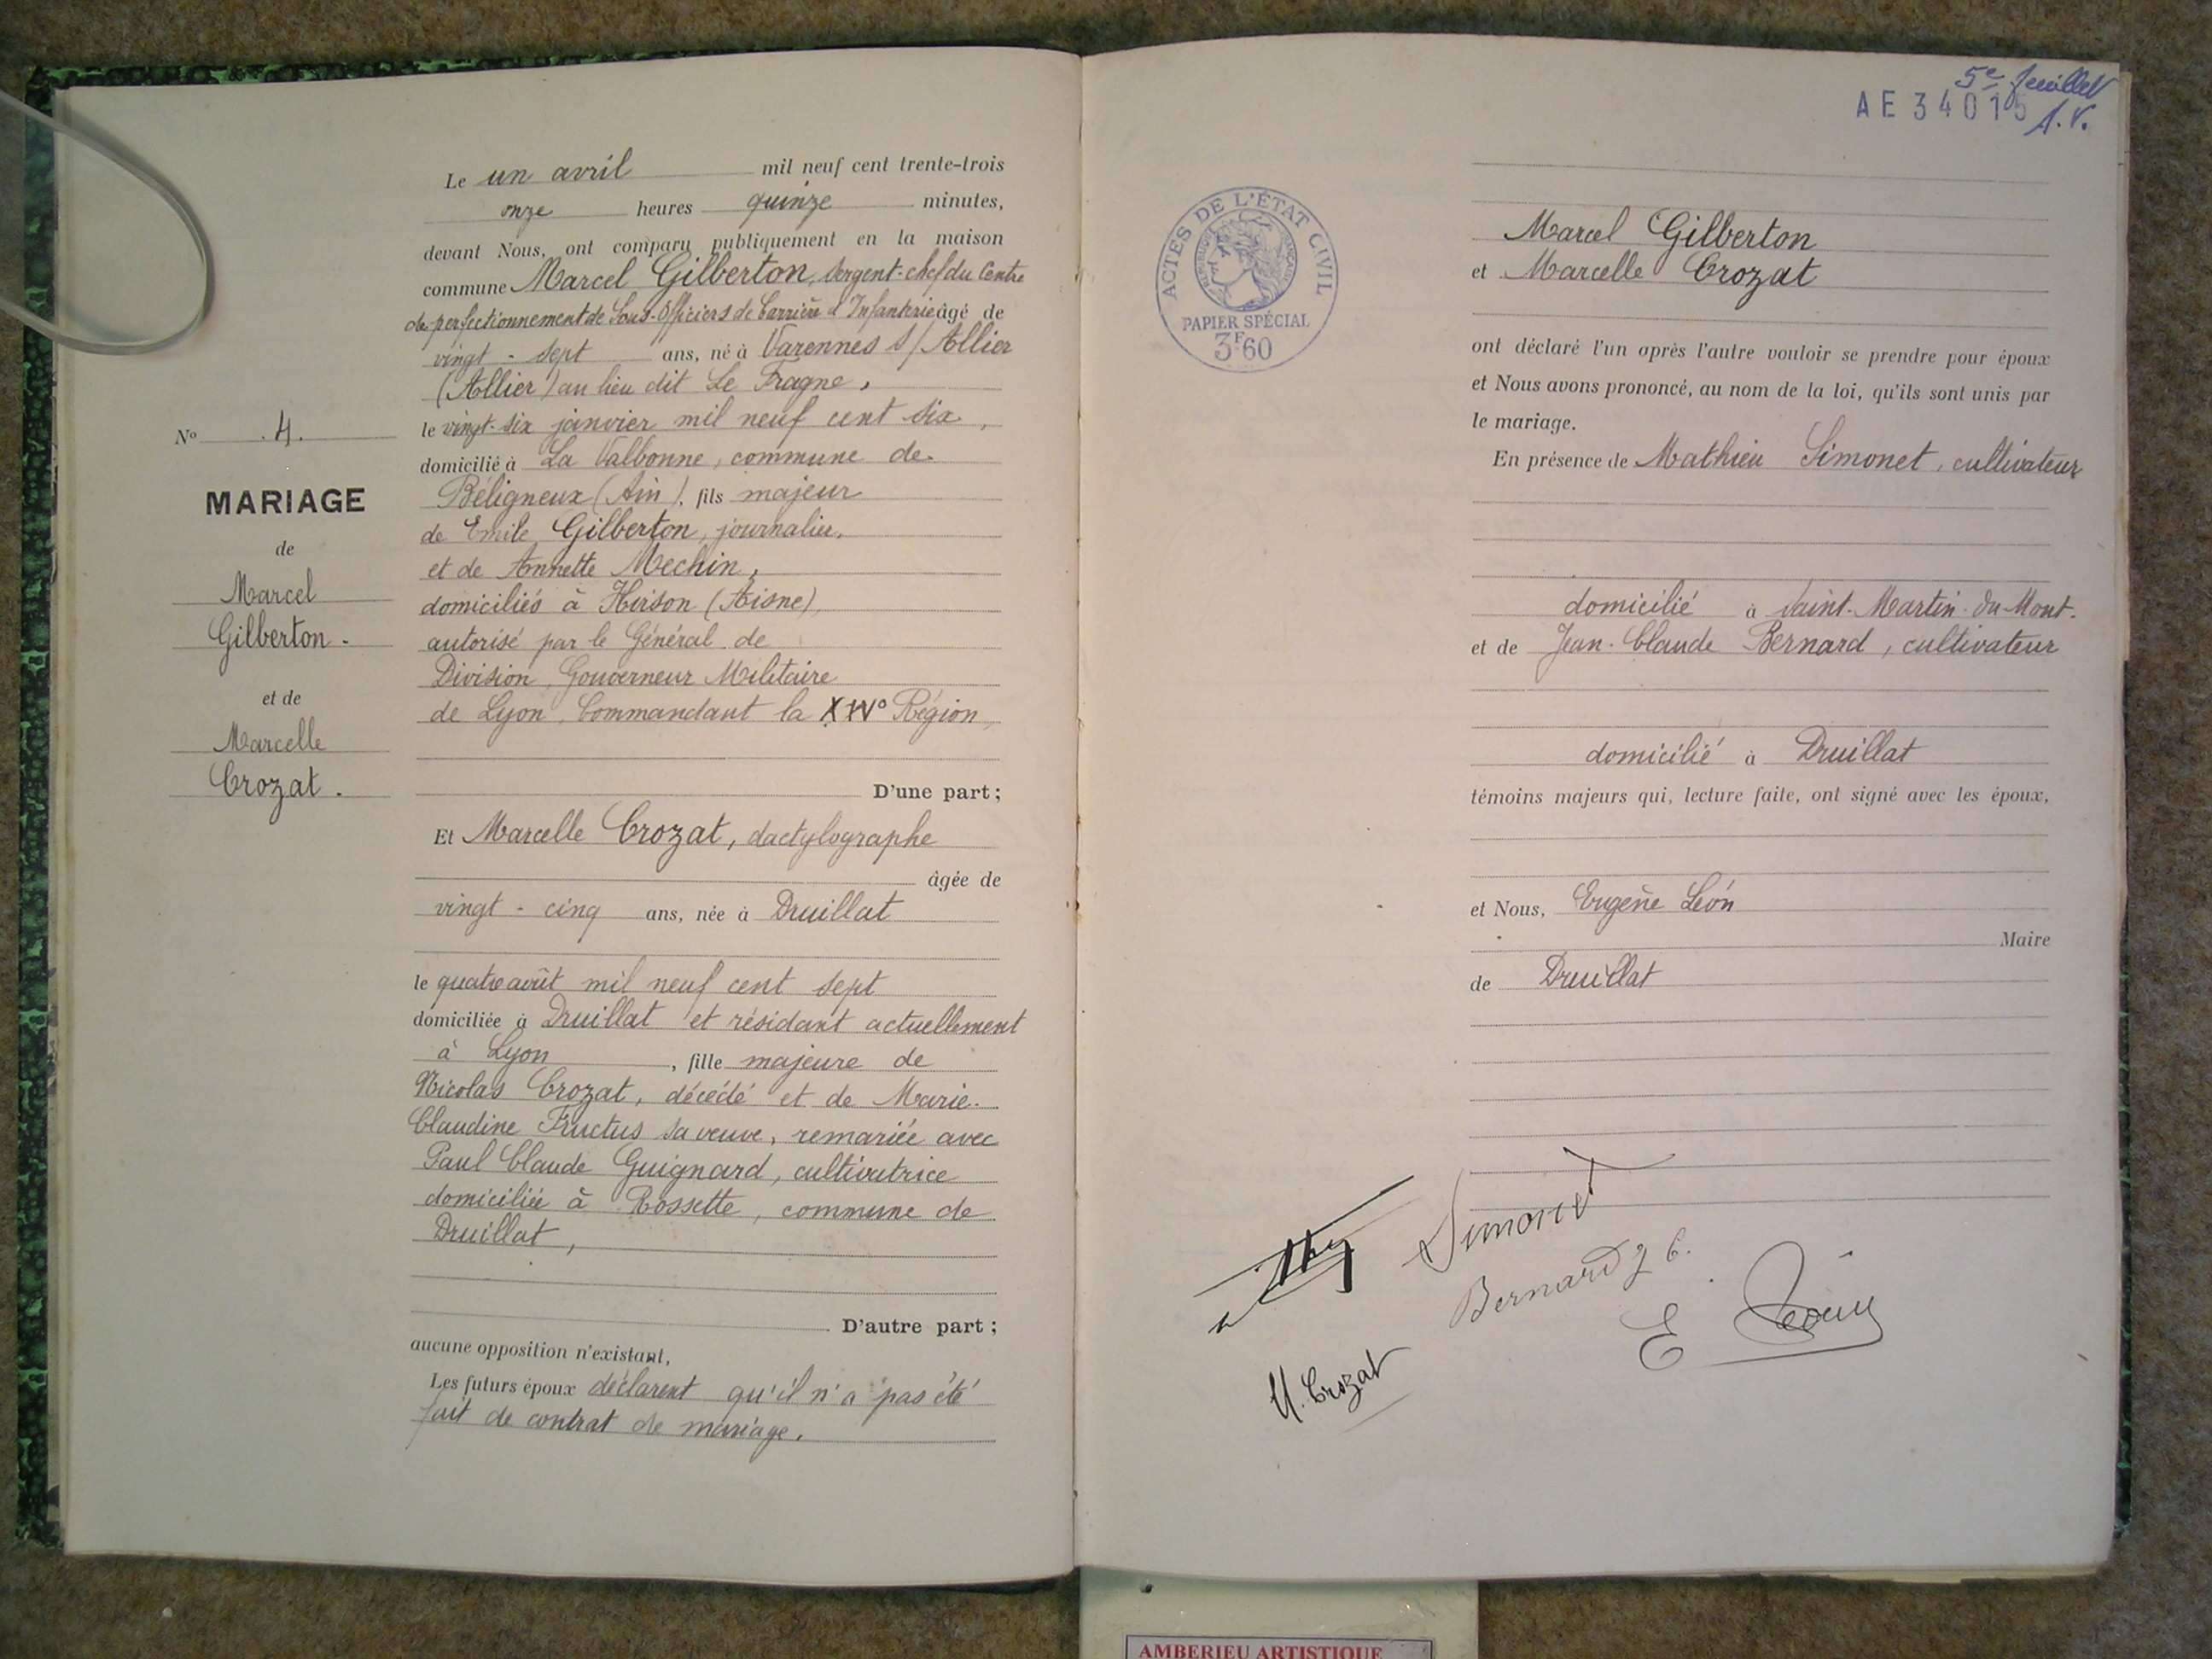 Le un avril mil neuf cent trente-trois
onze heures quinze minutes,
devant Nous, ont comparu publiquement en la maison
commune Marcel Gilberton, Sergent-chef du Centre
de perfectionnement de Sous-Officiers de Carrière d'Infanterie âgé de
vingt-sept ans, né à Varennes s/Allier
(Allier) au lieu dit Le Fragne,
le vingt-six janvier mil neuf cent six,
domicilié à La Valbonne, commune de
Béligneux (Ain), fils majeur
de Emile Gilberton, journalier,
et de Annette Mechin,
domiciliés à Hirson (Aisne),
autorisé par le Général de
Division, Gouverneur Militaire
de Lyon, Commandant la Région,
D'une part;
Et Marcelle Crozat, dactylographe
âgée de
vingt-cinq ans, née à Druillat
le quatre août mil neuf cent sept
domiciliée à Druillat et résidant actuellement
à Lyon, fille majeure de
Nicolas Crozat, décédé et de Marie-
Claudine Fructus sa veuve, remariée avec
Paul Claude Guignard, cultivatrice
domiciliée à Rossette, commune de
Druillat,
D'autre part;
aucune opposition n'existant,
Les futurs époux déclarent qu'il n'a pas été
fait de contrat de mariage.
No 4.
MARIAGE
de
Marcel
Gilberton.
et de
Marcelle
Crozat.
5e feuillet
AE 34015
A.V.
ACTES DE L'ÉTAT CIVIL
RÉPUBLIQUE FRANÇAISE
PAPIER SPÉCIAL
3F60
Marcel Gilberton
et Marcelle Crozat
ont déclaré l'un après l'autre vouloir se prendre pour époux
et Nous avons prononcé, au nom de la loi, qu'ils sont unis par
le mariage.
En présence de Mathieu Simonet, cultivateur
domicilié à Saint-Martin-du-Mont.
et de Jean-Claude Bernard, cultivateur
domicilié à Druillat
témoins majeurs qui, lecture faite, ont signé avec les époux,
et Nous, Eugène Léon
Maire
de Druillat
Simonet
Bernard J C.
E Léon
M. Crozat
AMBERIEU ARTISTIQUE